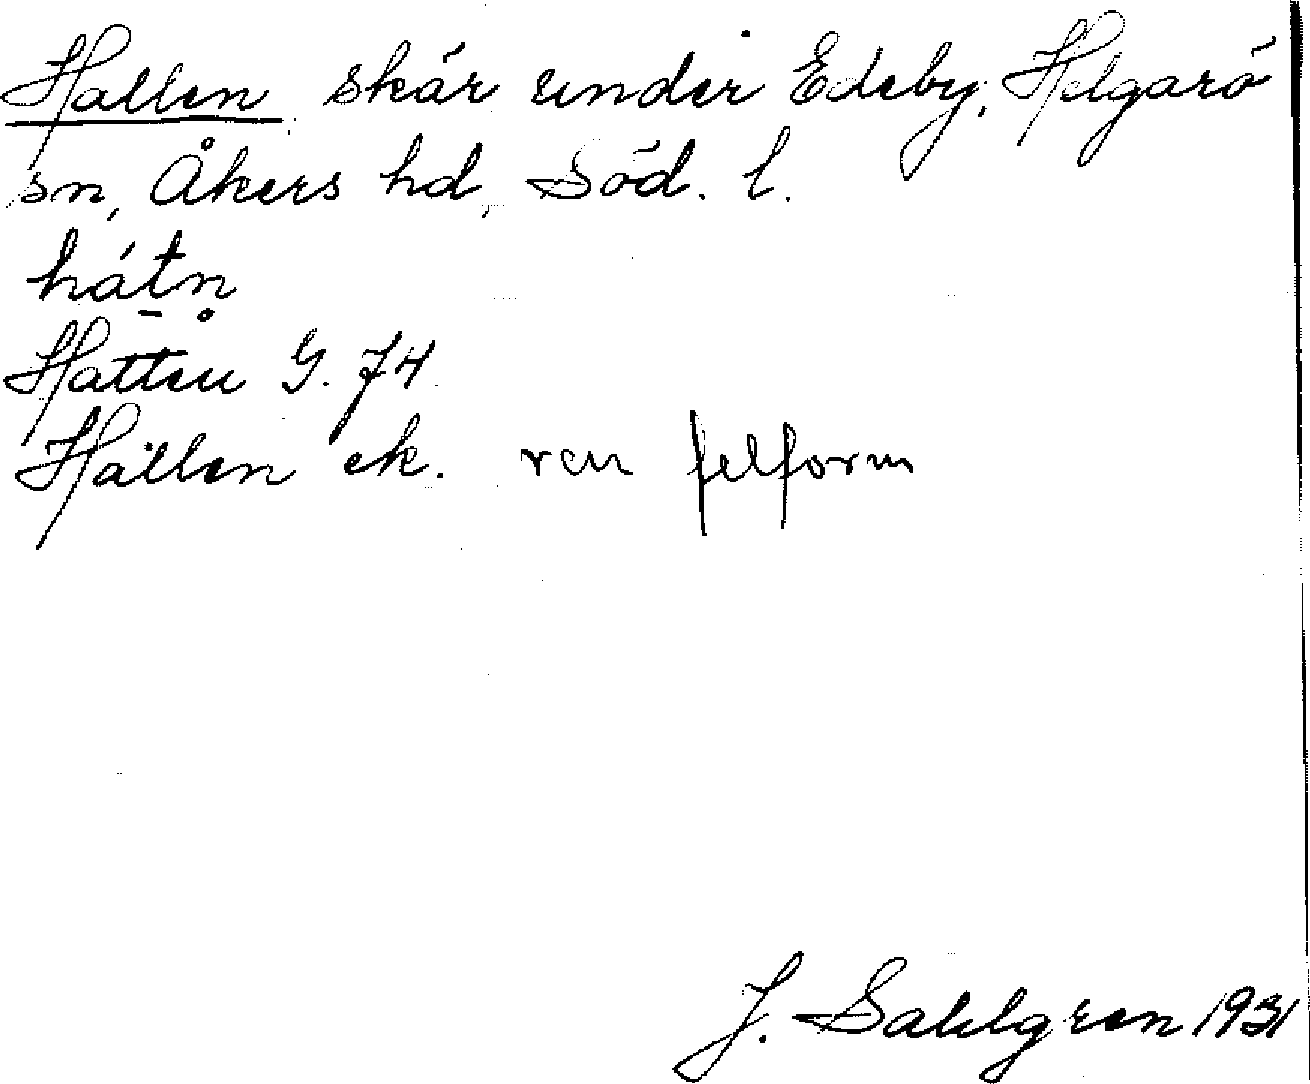 Hallen, skär under Edeby, Helgarö
sn, Åkers hd, Söd. l.
hátn̥
Hatten G. 74.
Hällen ek. ren felform
J. Sahlgren 1931